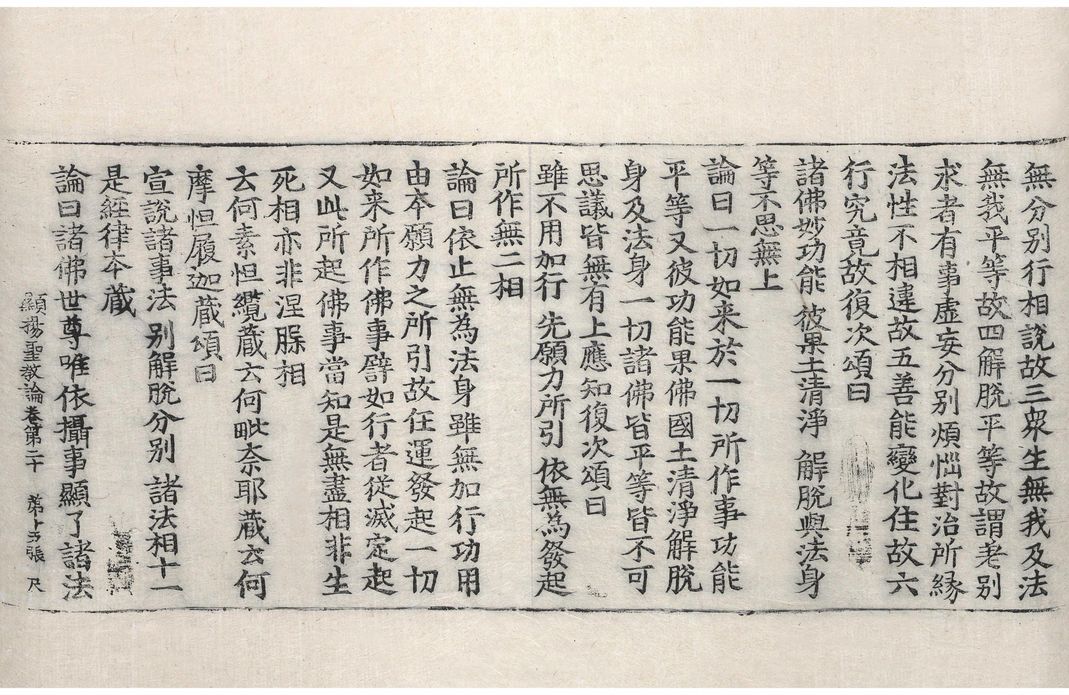 無分別行相說故三衆生無我及法
無我平等故四解脫平等故謂老別
求者有事虛妄分別煩惱對治所緣
法性不相違故五善能變化住故六
行究竟故復次頌曰
諸佛妙功能 彼果土清淨 解脫與法身
等不思無上
論曰一切如来於一切所作事功能
平等又彼功能果佛國土清淨解脫
身及法身一切諸佛皆平等皆不可
思議皆無有上應知復次頌曰
雖不用加行 先願力所引 依無為發起
所作無二相
論曰依止無為法身雖無加行功用
由本願力之所引故任運發起一切
如来所作佛事譬如行者從滅定起
又此所起佛事當知是無盡相非生
死相亦非涅脲相
云何素怛纜蔵云何毗奈耶蔵云何
摩怛履迦蔵頌曰
宣說諸事法 別解脫分別 諸法相十一
是經律本蔵
論曰諸佛世尊唯依攝事顯了諸法
顯揚聖教論卷第二十 第十五張 尺